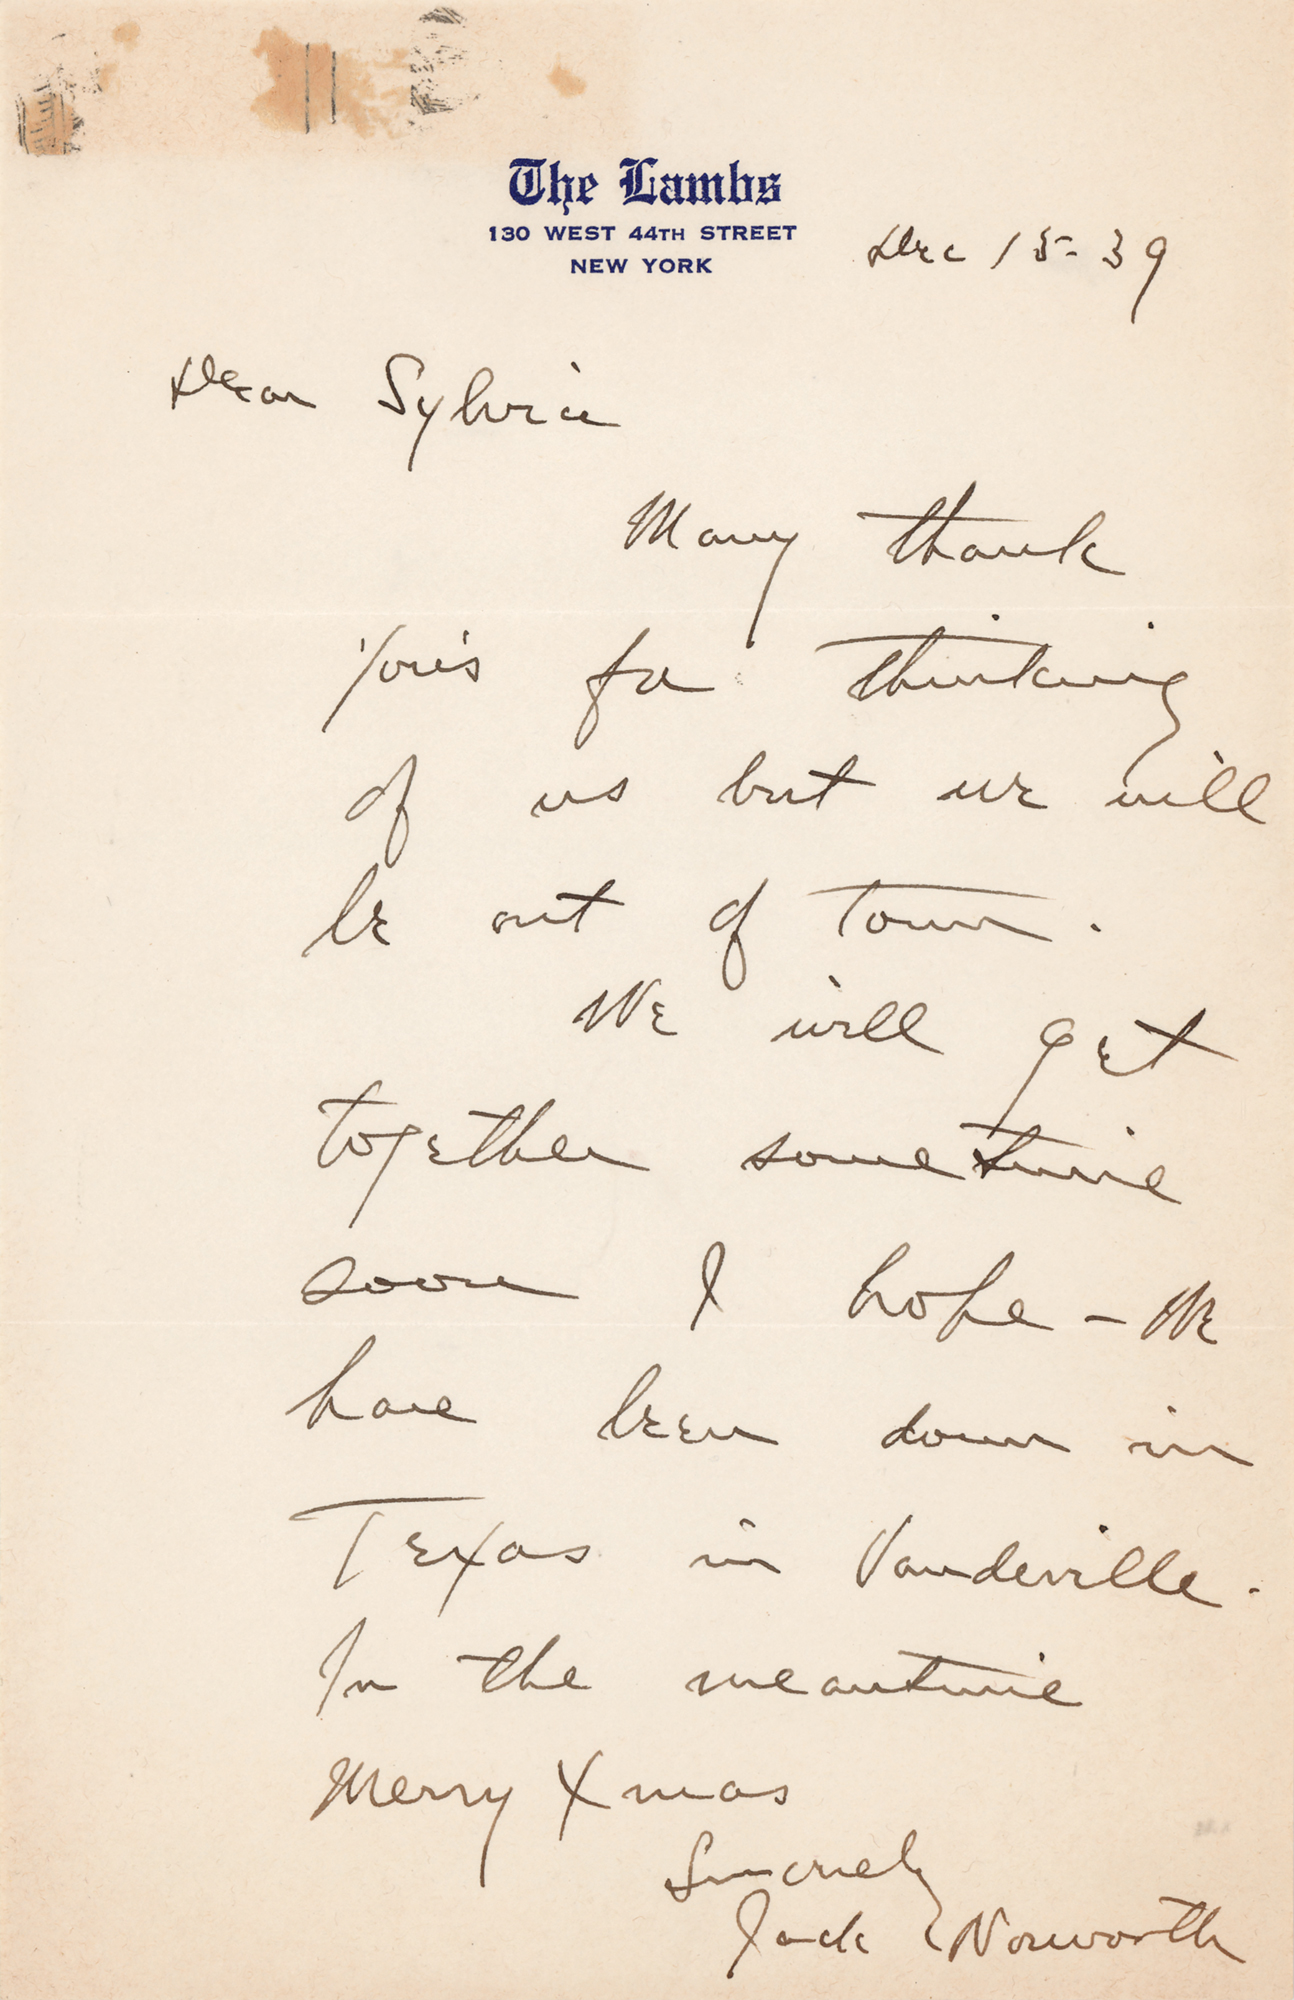 The Lambs
130 WEST 44TH STREET
NEW YORK
Dec 15-39
Dear Sylvia
Many thank
You's for thinking
of us but we will
be out of town.
We will get
together sometime
soon I hope - We
have been down in
Texas in Vaudeville.
In the meantime
Merry Xmas
Sincerely
Jack Norworth